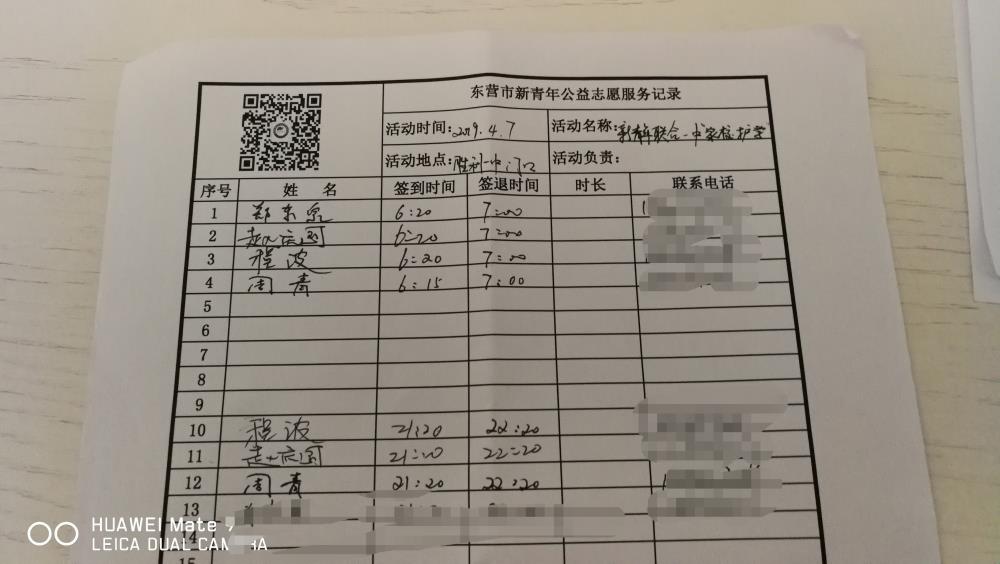 东营市新青年公益志愿服务记录
活动时间：2019.4.7 活动名称：新青年联合一中家校护学
活动地点：胜利一中门口 活动负责：
序号 姓 名 签到时间 签退时间 时长 联系电话
1 郑东泉 6:20 7:00
2 赵庆国 6:20 7:00
3 程波 6:20 7:00
4 周青 6:15 7:00
5
6
7
8
9
10 程波 21:20 22:20
11 赵庆国 21:20 22:20
12 周青 21:20 22:20
13
14
15
HUAWEI Mate 9
LEICA DUAL CAMERA